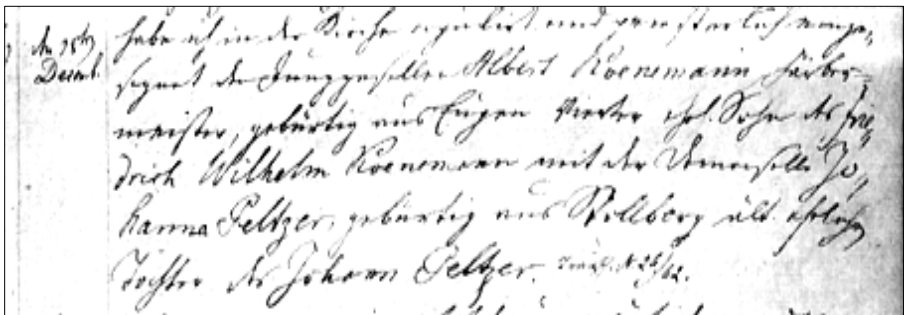 den 28ten habe ich in der Kirche copulirt und priesterlich einge-
Decemb. segnet den Junggesellen Albert Koenemann Färber-
meister, gebürtig aus Eupen vierter ehl. Sohn des Frie-
drich Wilhelm Koenemann mit der Demoiselle Jo-
hanna Peltzer, gebürtig aus Stollberg ält. eheliche
Tochter des Johann Peltzer.